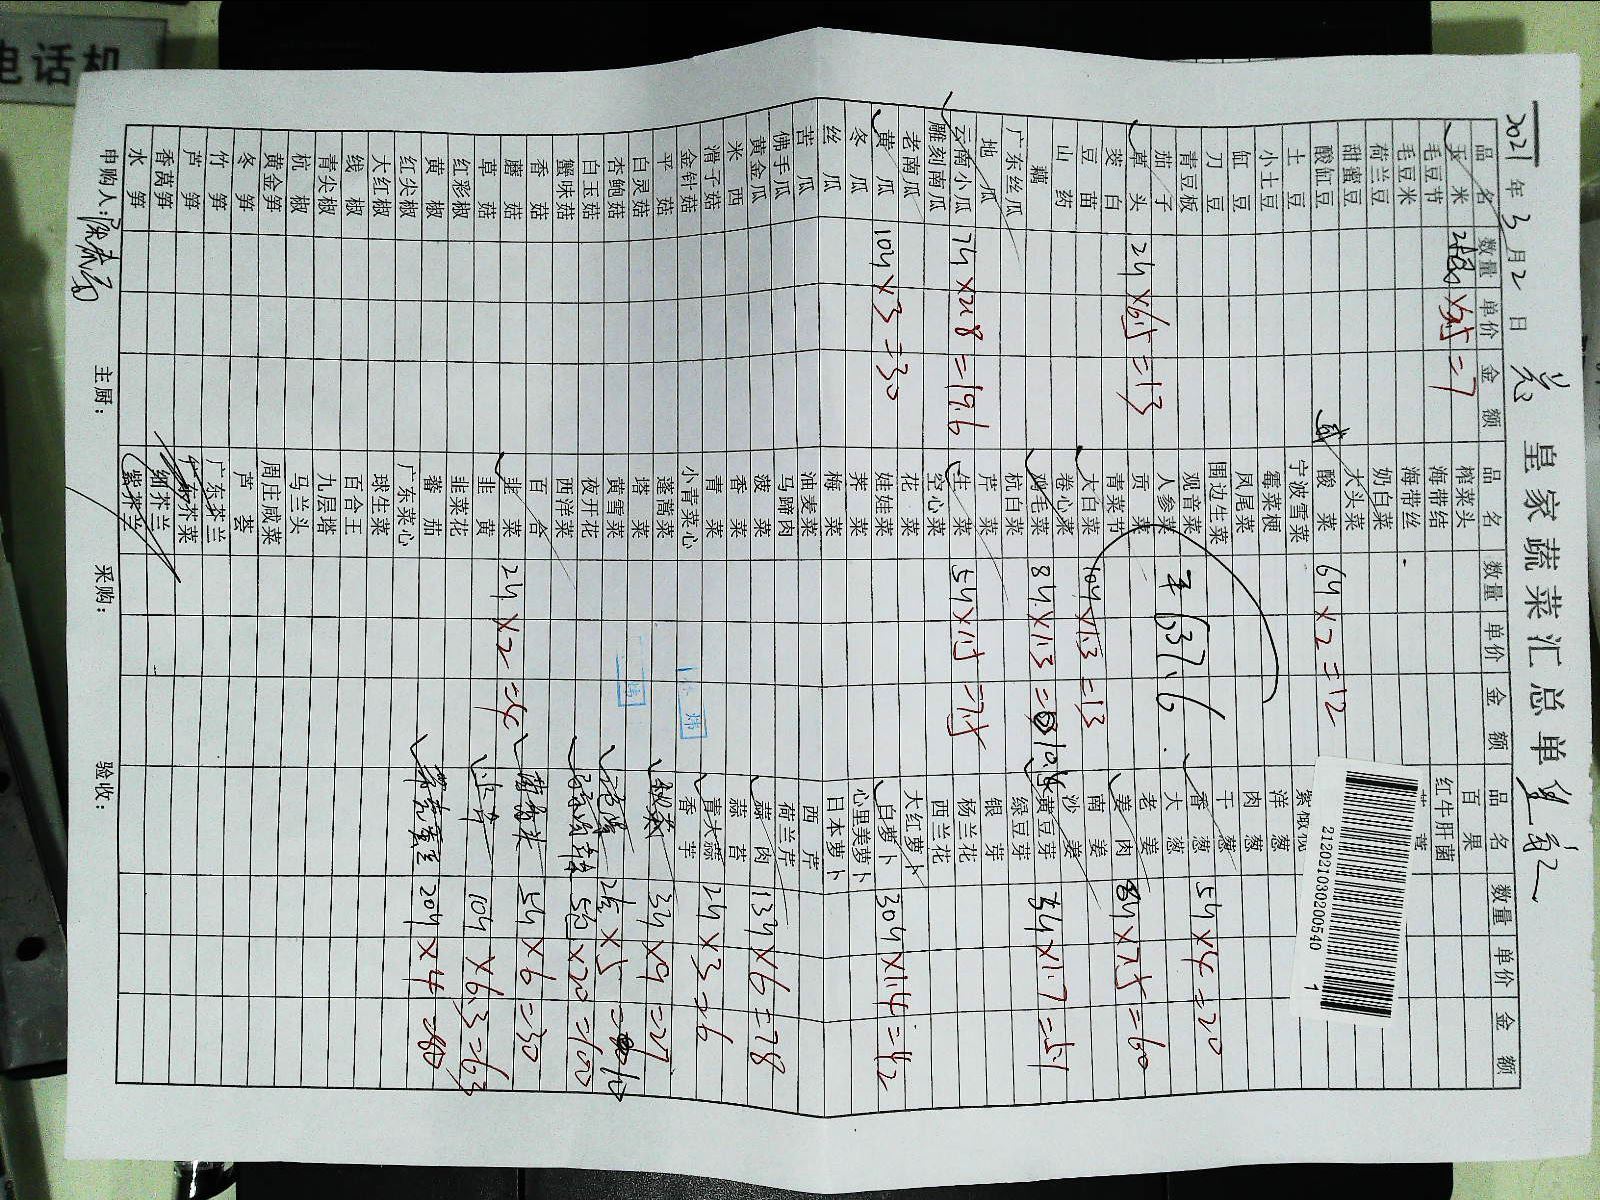 电话机
皇家蔬菜汇总单
2021年3月2日
品名 数量 单价 金额 品名 数量 单价 金额 品名 数量 单价 金额
玉米 ×3.5=7 榨菜头 百果
毛豆节 海带结 红牛肝菌
毛豆米 海带丝
荷兰豆 奶白菜
甜蜜豆 大头菜
酸缸豆 酸菜 6斤×2=12
土豆 宁波雪菜
小土豆 霉菜梗 洋葱
缸豆 凤尾菜 肉葱
刀豆 围边生菜 干葱
青豆板 观音菜 香葱 5斤×4=20
茄子 人参菜 大葱
草头 2斤×6.5=13 贡菜 老姜
茭白 青菜节 姜肉 8斤×7.5=60
豆苗 大白菜 10斤×1.3=13 南姜
山药 卷心菜 沙姜
藕 鸡毛菜 8斤×1.3=10.4 黄豆芽 3斤×1.7=5.1
广东丝瓜 杭白菜 绿豆芽
地瓜 芹菜 银芽
云南小瓜 7斤×2.8=19.6 生菜 5斤×1.5=7.5 杨兰花
雕刻南瓜 空心菜 西兰花
老南瓜 花菜 大红萝卜
黄瓜 10斤×3=30 娃娃菜 白萝卜 30斤×1.4=42
冬瓜 荠菜 心里美萝卜
丝瓜 梅菜 日本萝卜
苦瓜 油麦菜 西芹
佛手瓜 马蹄肉 荷兰芹
黄金瓜 菠菜 蒜肉 13斤×6=78
米西 香菜 蒜苔
滑子菇 青菜 青大蒜 2斤×3=6
金针菇 小青菜心 香芋
平菇 蓬蒿菜 秋葵 3斤×9=27
白灵菇 塔菜
杏鲍菇 黄雪菜 ×5=10
白玉菇 夜开花 ×20=100
蟹味菇 西洋菜
香菇 百合 5斤×6=30
蘑菇 韭菜 2斤×2=4
草菇 韭黄 10斤×6.3=63
红彩椒 韭菜花
黄椒 番茄 20斤×4=80
红尖椒 广东菜心
大红椒 球生菜
线椒 百合王
青尖椒 九层塔
杭椒 马兰头
黄金笋 周庄咸菜
冬笋 芦荟
竹笋 广东芥兰
芦笋 广东芥菜
香莴笋 细芥兰
水笋 紫芥兰
637.6
申购人: 主厨: 采购: 验收:
21202103020054​0 1